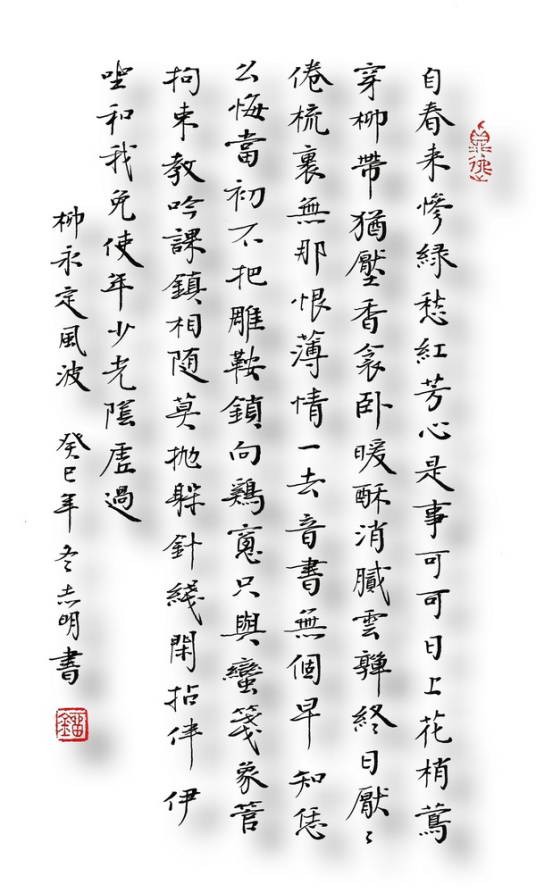 自春来慘緑愁紅芳心是事可可日上花梢鶯
穿柳帶猶壓香衾卧暖酥消膩雲嚲終日厭〻
倦梳裏無那恨薄情一去音書無個早知恁
么悔當初不把雕鞍鎖向鷄窻只與蠻箋象管
拘束教吟課鎮相随莫抛躲針綫閑拈伴伊
坐和我免使年少光陰虚過
柳永定風波 癸巳年冬志明書